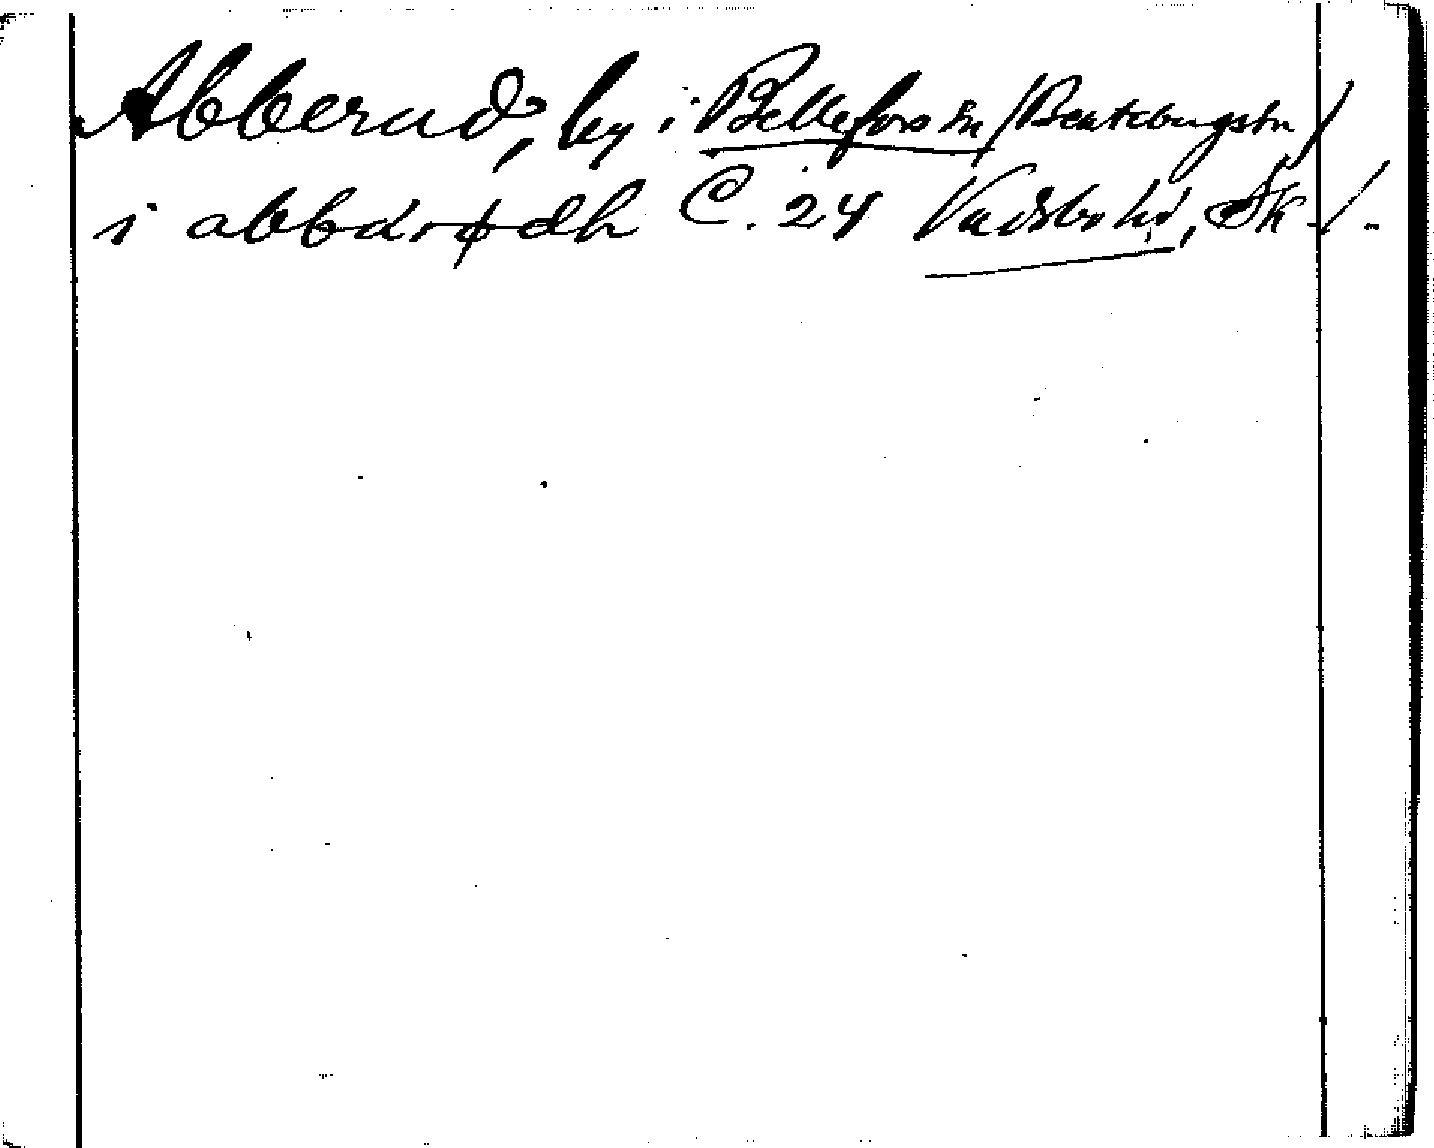 Abberud, by i Bellefors sn /Beateburgstn/
i abbarødh C. 24 Vadsbo hd, Sk./.